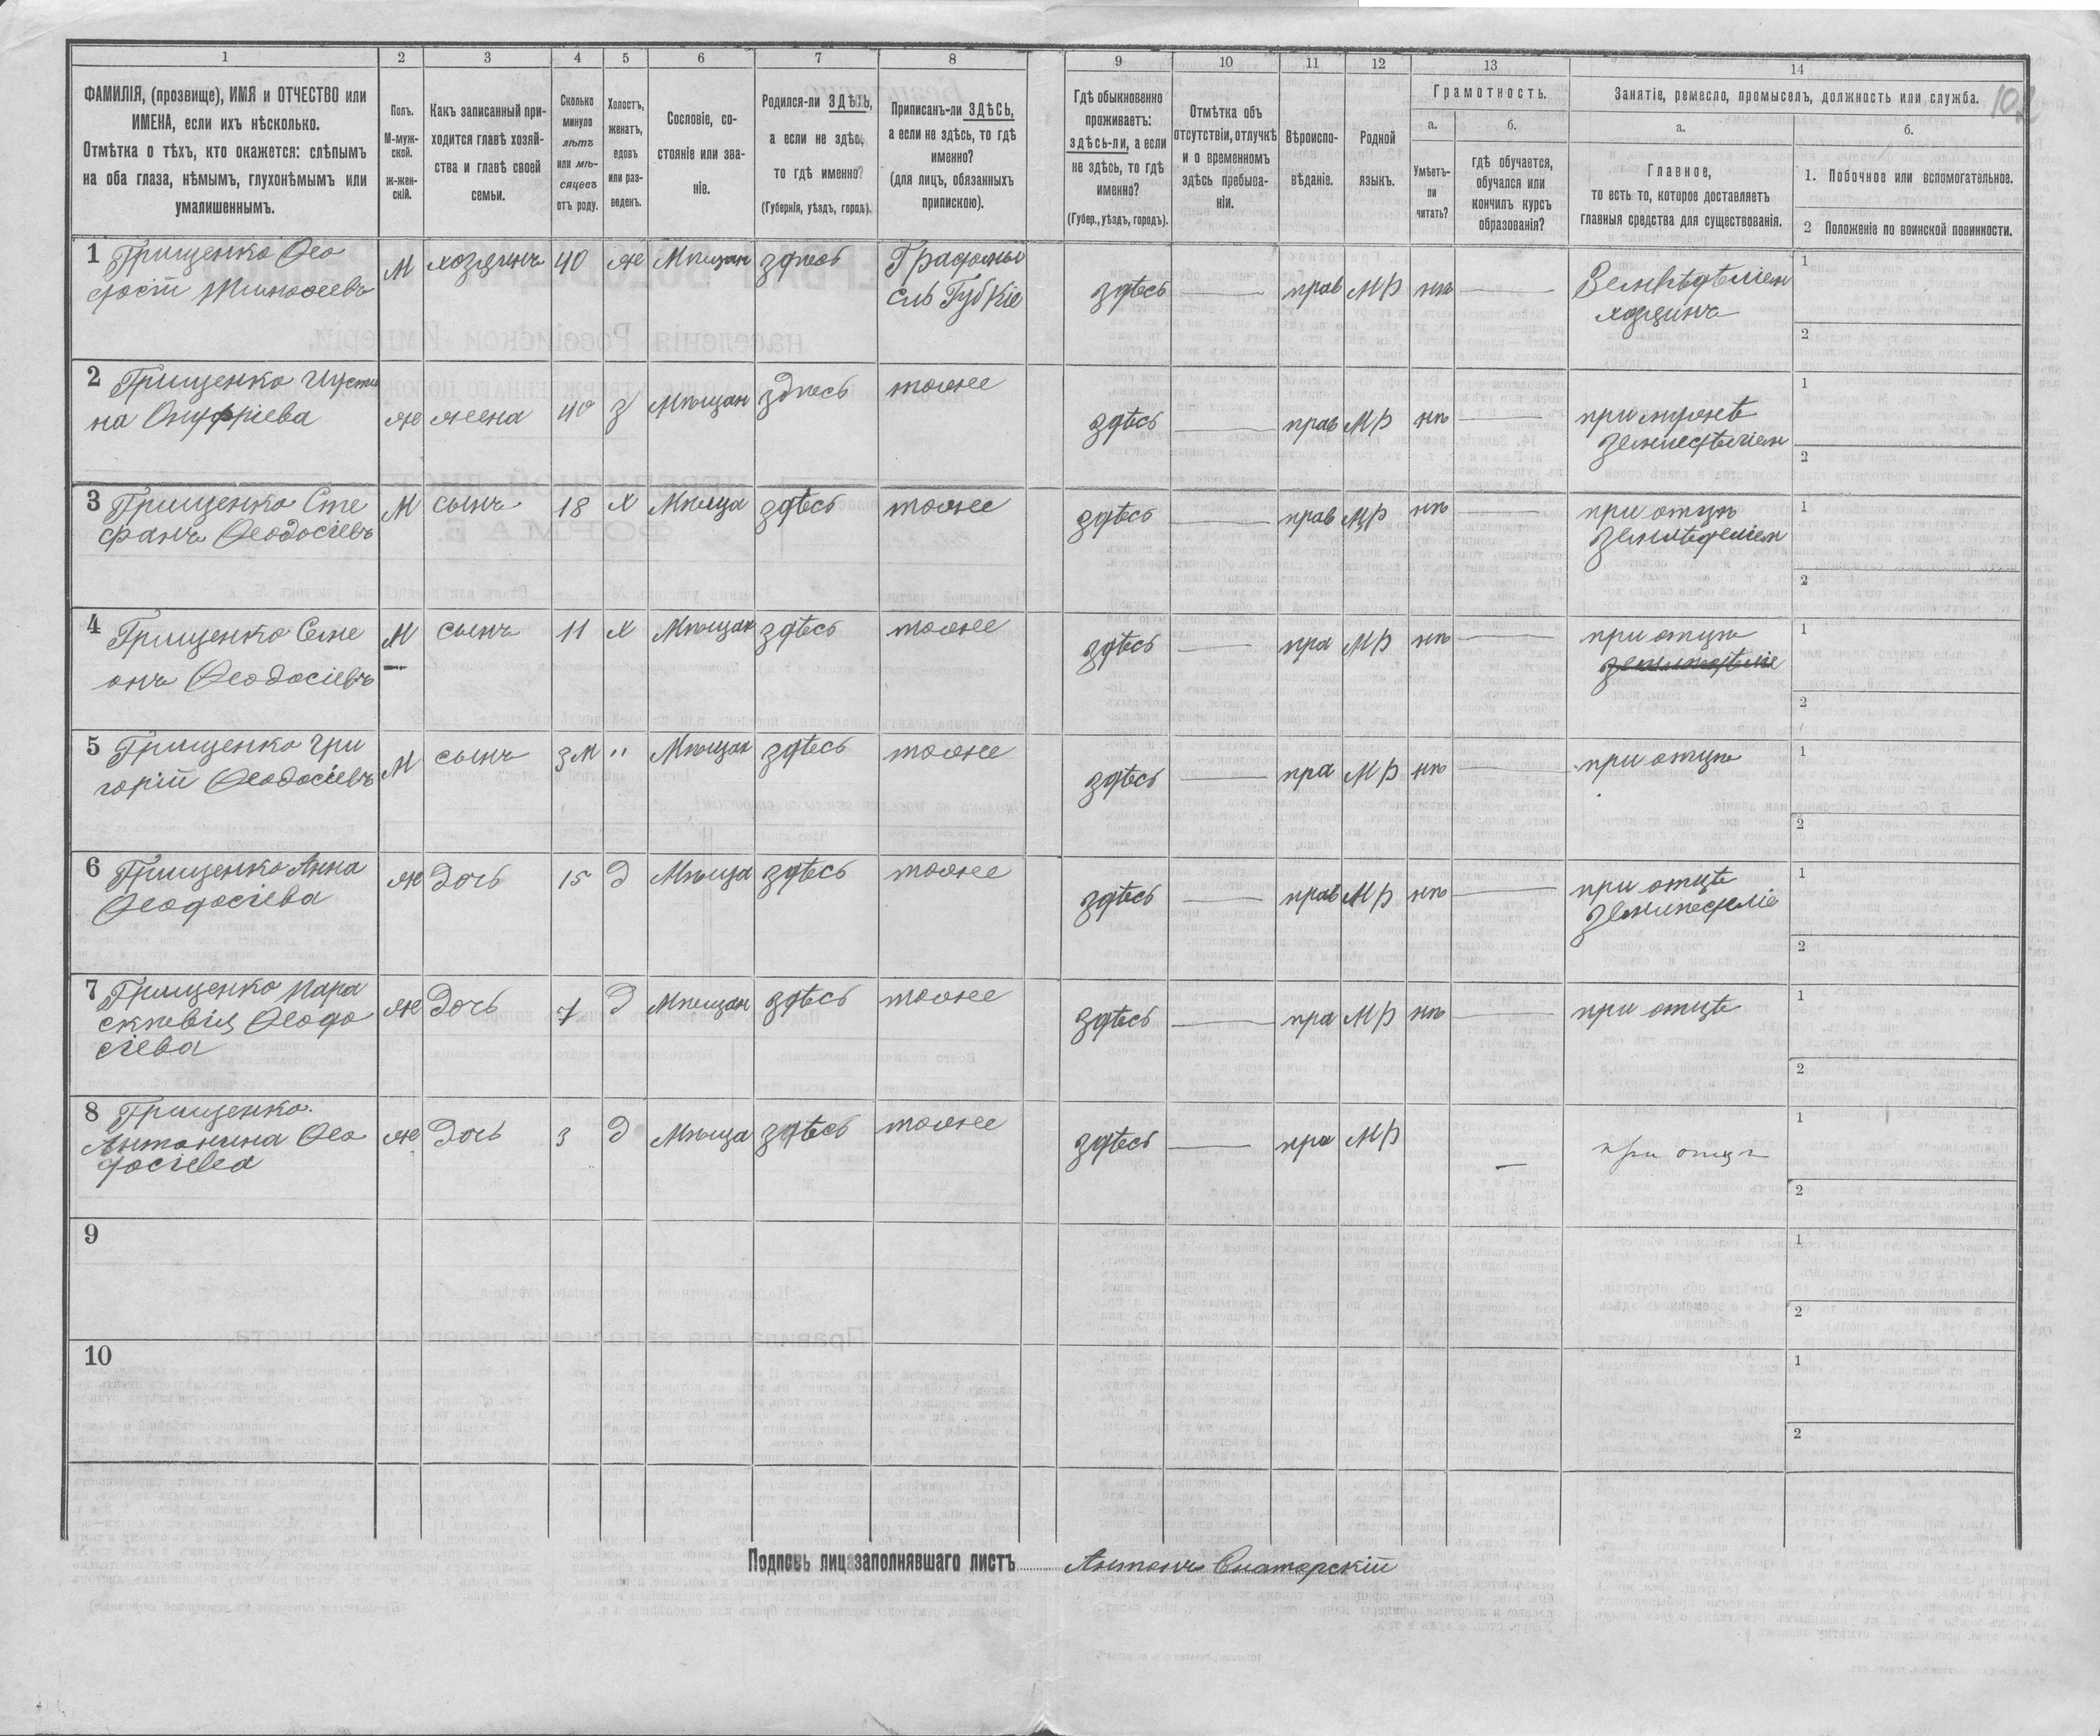 1 2 3 4 5 6 7 8 9 10 11 12 13 14
ФАМИЛІЯ, (прозвище), ИМЯ и ОТЧЕСТВО или
ИМЕНА, если ихъ нѣсколько.
Отмѣтка о тѣхъ, кто окажется: слѣпымъ
на оба глаза, нѣмымъ, глухонѣмымъ или
умалишеннымъ.
Полъ.
М-муж-
ской.
ж-жен-
скій.
Какъ записанный при-
ходится главѣ хозяй-
ства и главѣ своей
семьи.
Сколько
минуло
лѣтъ
или мѣ-
сяцевъ
отъ роду.
Холостъ,
женатъ,
вдовъ
или раз-
веденъ.
Сословіе, со-
стояніе или зва-
ніе.
Родился-ли ЗДѢСЬ,
а если не здѣсь,
то гдѣ именно?
(Губернія, уѣздъ, городъ).
Приписанъ-ли ЗДѢСЬ,
а если не здѣсь, то гдѣ
именно?
(для лицъ, обязанныхъ
припискою).
Гдѣ обыкновенно
проживаетъ:
ЗДѢСЬ-ЛИ, а если
не здѣсь, то гдѣ
именно?
(Губер., уѣздъ, городъ).
Отмѣтка объ
отсутствіи, отлучкѣ
и о временномъ
здѣсь пребыва-
ніи.
Вѣроиспо-
вѣданіе.
Родной
языкъ.
Грамотность.
а.
Умѣетъ-
ли
читать?
б.
гдѣ обучается,
обучался или
кончилъ курсъ
образованія?
Занятіе, ремесло, промыселъ, должность или служба.
102
а.
Главное,
то есть то, которое доставляетъ
главныя средства для существованія.
б.
1. Побочное или вспомогательное.
2 Положеніе по воинской повинности.
1 Грищенко Ѳео
досій
М хозяинъ 40 ж Мѣщан здѣсь
здѣсь — прав МР нѣ —
хозяинъ
1
2
2 Грищенко Иусти
на Онуфріева
ж жена 40 з Мѣщан здѣсь тоже
здѣсь — прав МР нѣ —
при мужѣ
1
2
3 Грищенко Сте
фанъ Ѳеодосіевъ
М сынъ 18 х Мѣща здѣсь тоже
здѣсь — прав МР нѣ —
при отцѣ
1
2
4 Грищенко Семе
онъ Ѳеодосіевъ
М сынъ 11 х Мѣщан здѣсь тоже
здѣсь — пра МР нѣ —
при отцѣ
1
2
5 Грищенко Гри
горій Ѳеодосіевъ
М сынъ 3м " Мѣщан здѣсь тоже
здѣсь — пра МР нѣ —
при отцѣ
1
2
6 Грищенко Анна
Ѳеодосіева
ж дочь 15 д Мѣща здѣсь тоже
здѣсь — прав МР нѣ —
при отцѣ
1
2
7 Грищенко Пара
скѣвія Ѳеодо
сіева
ж дочь 7 д Мѣщан здѣсь тоже
здѣсь — пра МР нѣ —
при отцѣ
1
2
8 Грищенко
Антонина Ѳео
досіева
ж дочь 3 д Мѣща здѣсь тоже
здѣсь — пра МР —
при отцѣ
1
2
9
1
2
10
1
2
Подпись лица заполнявшаго листъ Антонъ